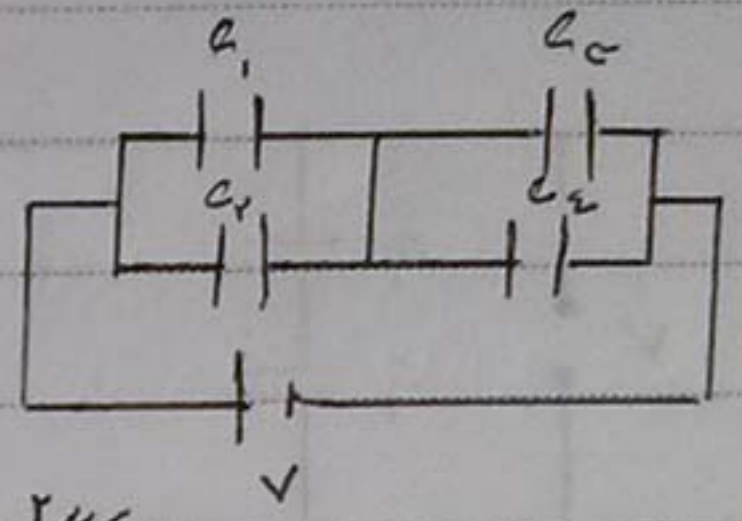 C١ C٣
C٢ C٤
V